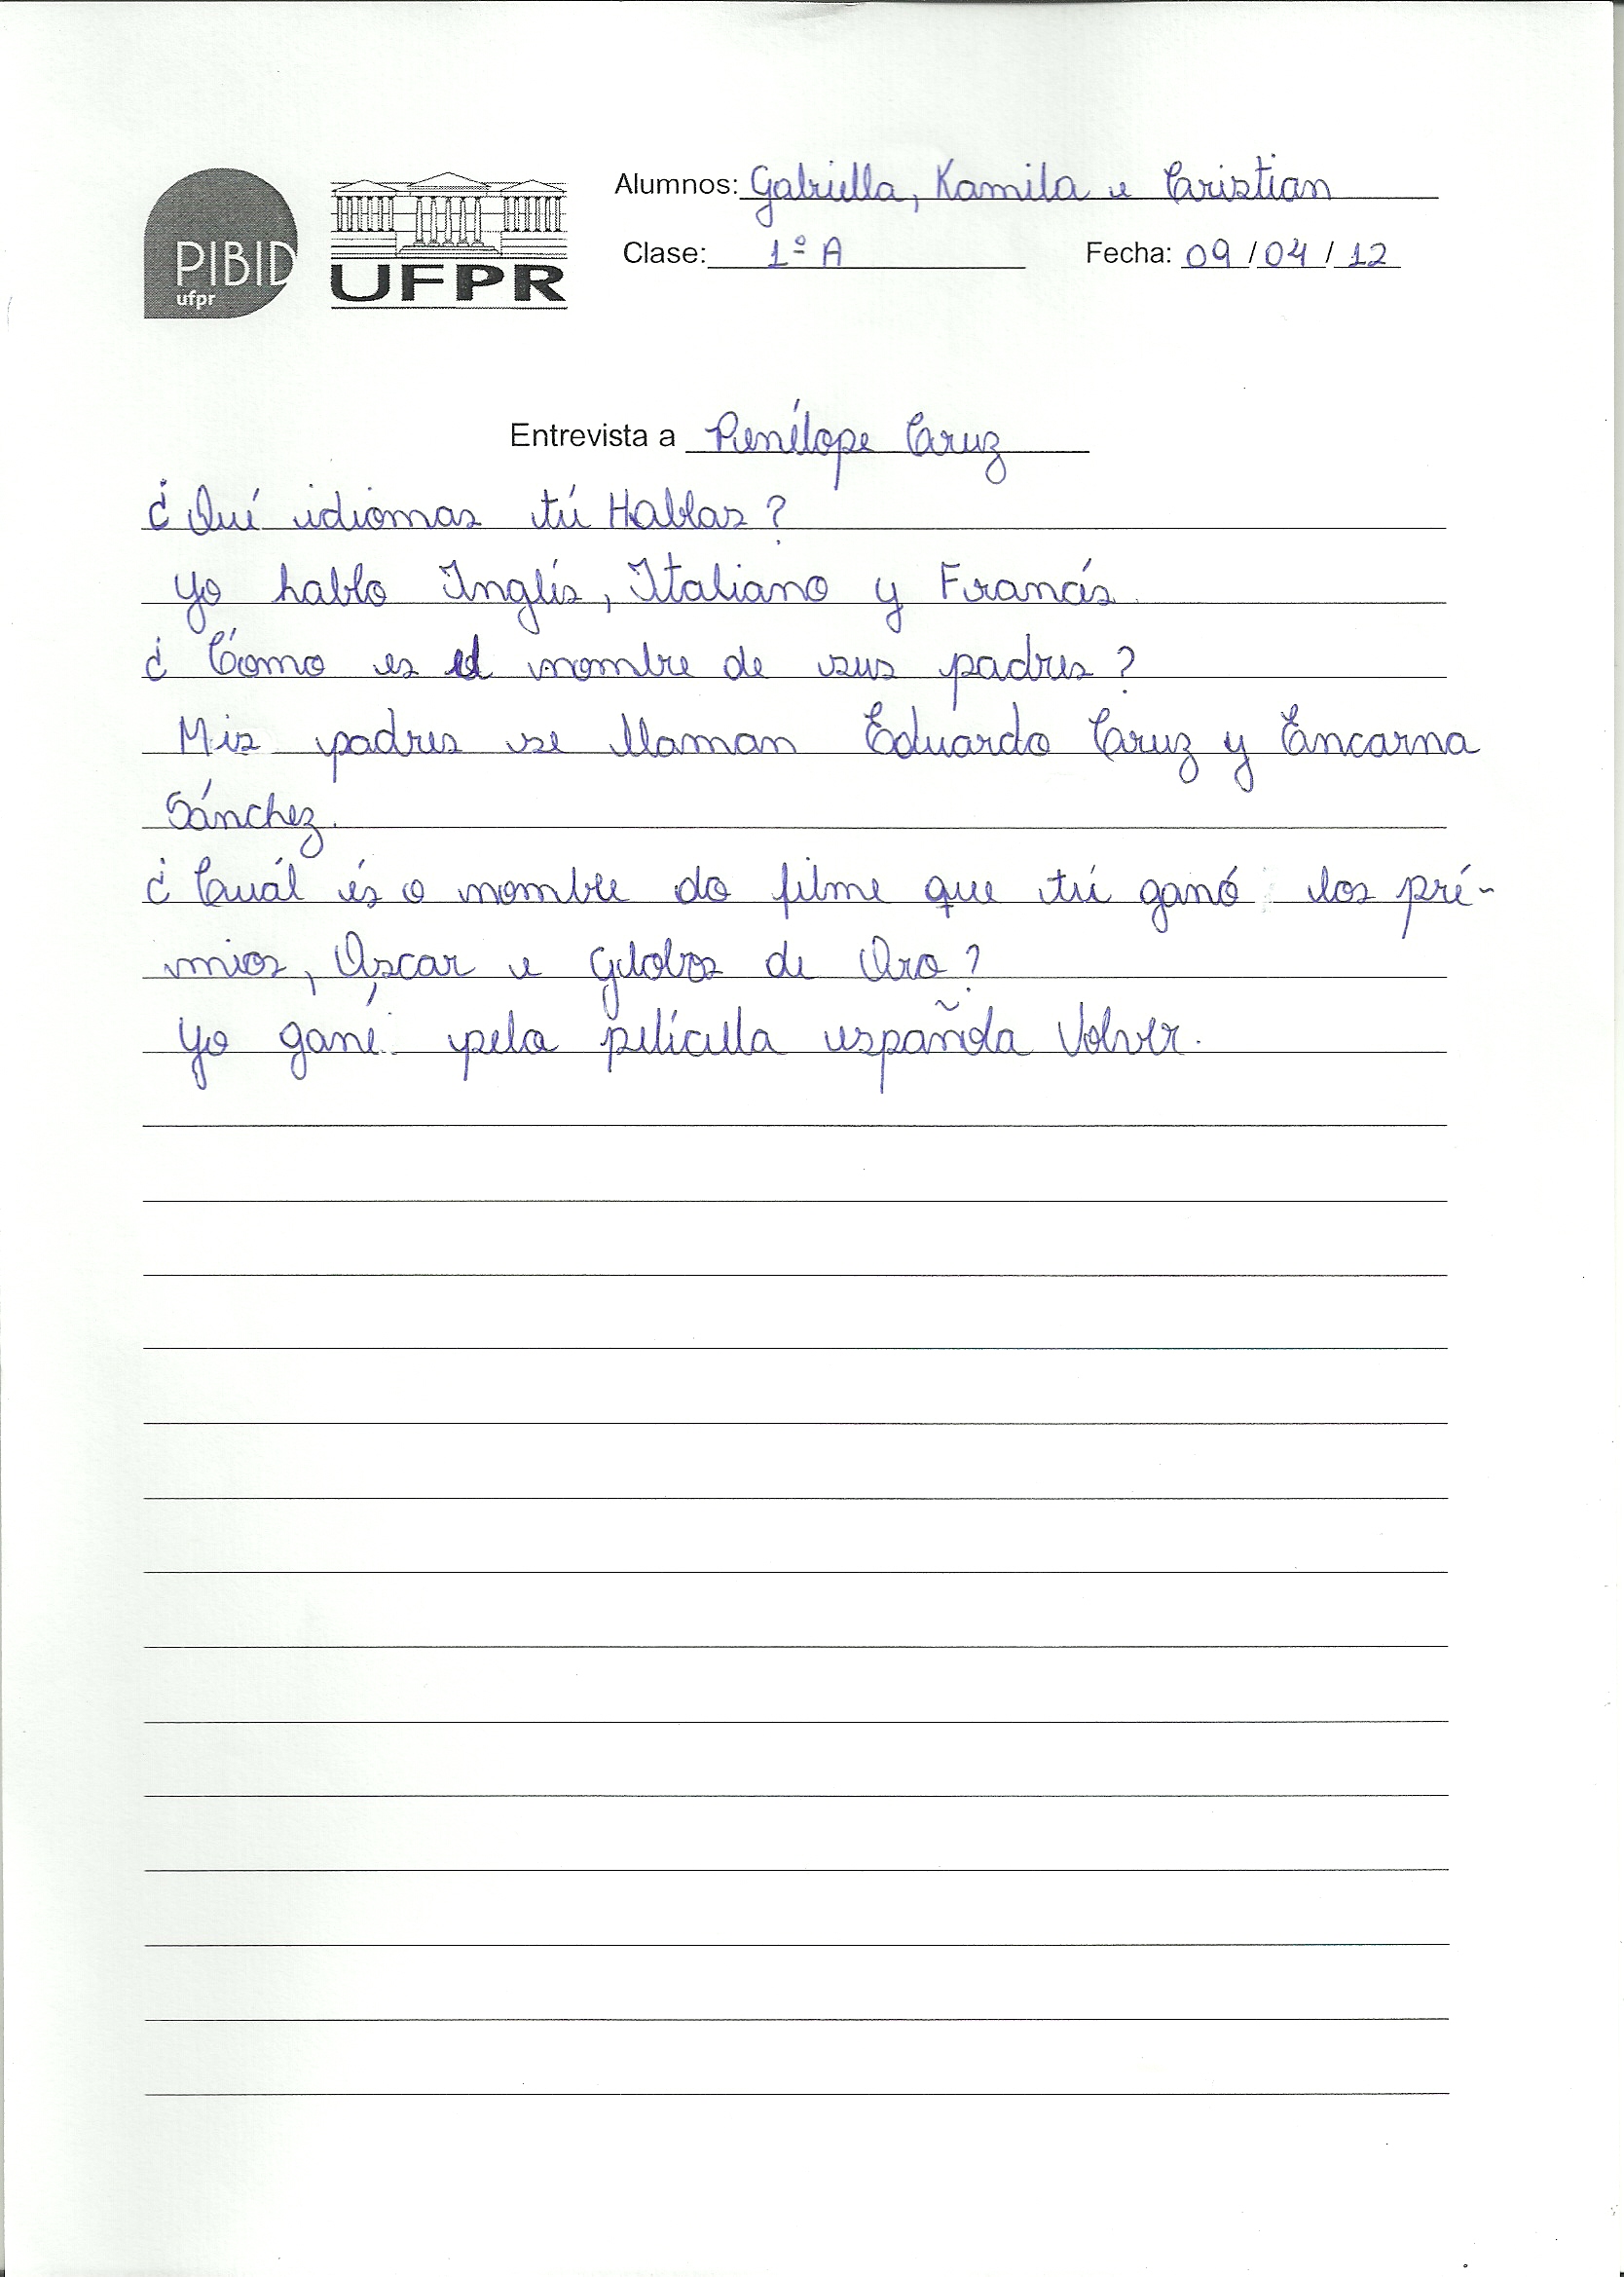 PIBID
ufpr
UFPR
Alumnos: Gabriella, Kamila e Cristian
Clase: 1º A Fecha: 09/04/12
Entrevista a Penélope Cruz
¿Qué idiomas tú Hablas?
Yo hablo Inglés, Italiano y Francés.
¿Cómo es el nombre de sus padres?
Mis padres se llaman Eduardo Cruz y Encarna
Sánchez.
¿Cuál és o nombre do filme que tú ganó los pré-
mios, Oscar e Globos de Oro?
Yo gané pela películla españda Volver.